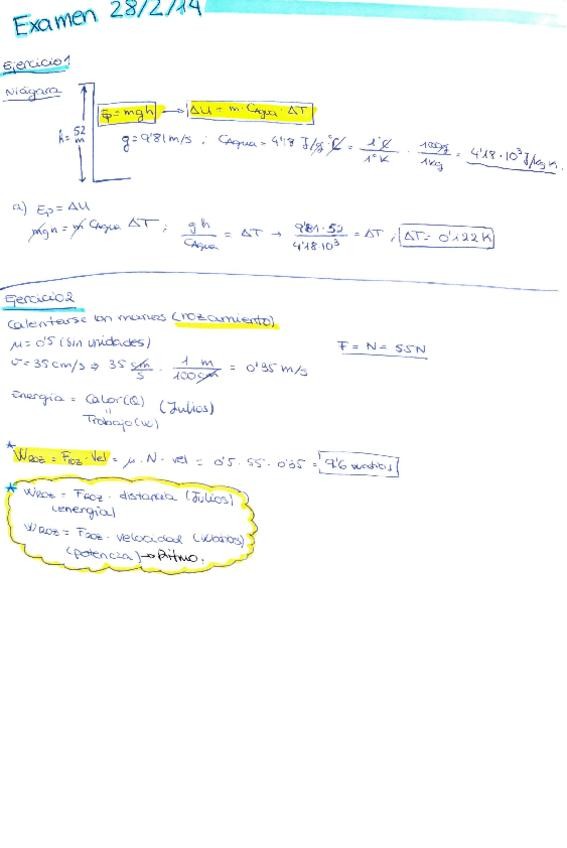 Examen 28/2/14
Ejercicio 1
Niágara
h = 52 m
Ep = mgh → ΔU = m · CAgua · ΔT
g = 9'81 m/s ; CAgua = 4'18 J/g °C = 1°C / 1°K · 1000g / 1kg = 4'18 · 10³ J/kg K.
a) Ep = ΔU
mgh = m CAgua ΔT ; gh / CAgua = ΔT → 9'81 · 52 / 4'18 · 10³ = ΔT ; ΔT = 0'122 K
Ejercicio 2
Calentarse las manos (rozamiento)
μ = 0'5 (sin unidades)
F = N = 55N
v = 35 cm/s ⇒ 35 cm/s · 1 m / 100 cm = 0'35 m/s
Energía = Calor (Q) (Julios)
Trabajo (W)
* WROZ = FROZ · Vel = μ · N · vel = 0'5 · 55 · 0'35 = 9'6 watios
* WROZ = FROZ · distancia (Julios)
(energía)
WROZ = FROZ · velocidad (watios)
(potencia) → Ritmo.